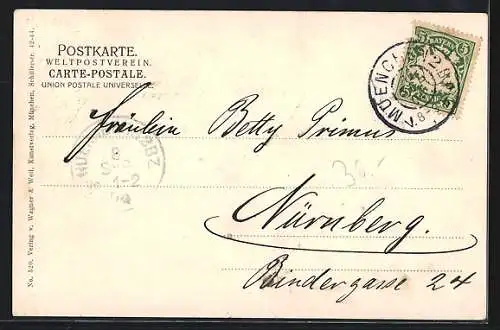 POSTKARTE.
WELTPOSTVEREIN.
CARTE-POSTALE.
UNION POSTALE UNIVERSELLE.
5 BAYERN 5
MUENCHEN
Fräulein Betty Primus
Nürnberg.
Bindergasse 24
No. 520. Verlag v. Wagner & Weil, Kunstverlag, München, Schillerstr. 42-44.